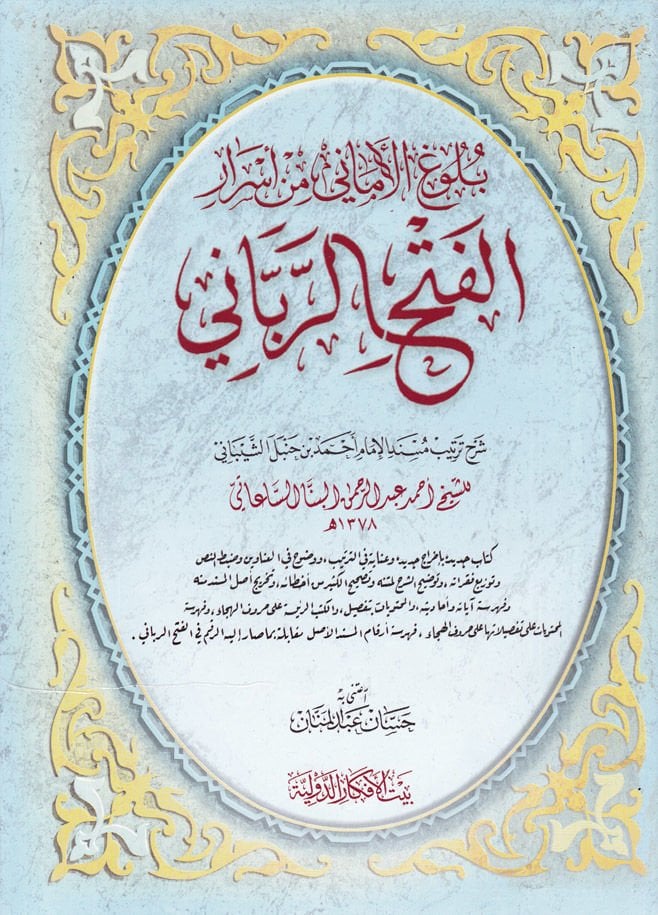 بُلُوغ الأَمَانِي مِنْ أَسْرَارِ
الفَتْحِ الرَّبَّانِي
شَرْح تَرْتِيب مُسْنَد الإِمَام أَحْمَد بْن حَنْبَل الشَّيْبَانِي
للشيخ أحمد عبد الرحمن البنا الساعاتي
١٣٧٨هـ
كتاب جديد بإخراج جديد، وعناية في الترتيب، ووضوح في العناوين وضبط للنص
وتوزيع فقراته، وتوضيح الشرح لمتنه وتصحيح الكثير من أخطائه، وتخريج أصل المسند منه
وفهرسة آياته وأحاديثه، والمحتويات بتفصيل، والكتب الرئيسة على حروف الهجاء، وفهرسة
المحتويات على تفصيلاتها على حروف الهجاء، فهرسة أرقام المسند الأصل مقابلة بما صار إليه الرقم في الفتح الرباني.
اعتنى به
حَسَّان عَبْد المَنَّان
بيت الأفكار الدولية